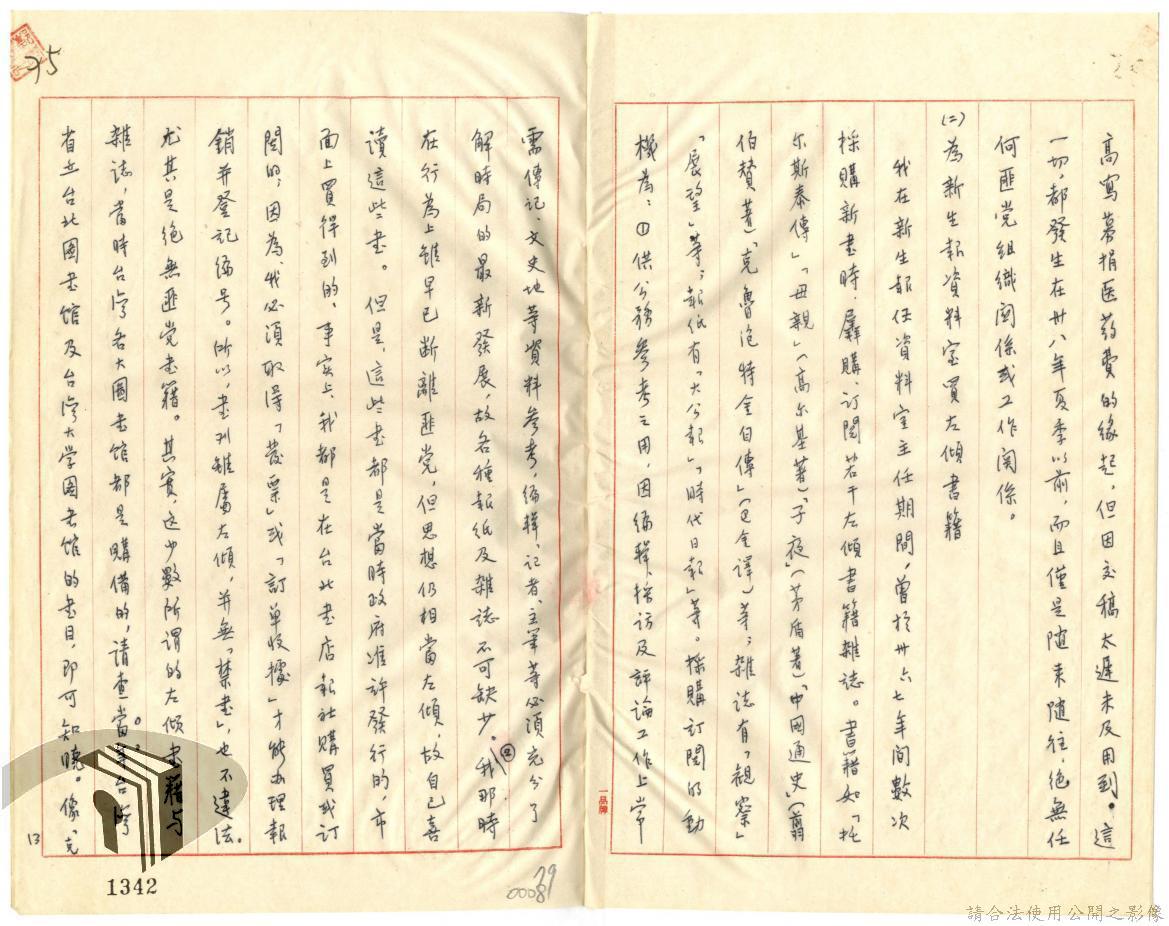 高寫募捐医药費的緣起，但因交稿太遲未及用到。這
一切，都發生在卅八年夏季以前，而且僅是随来随往，绝無任
何匪党组織関係或工作関係。
(二)為新生報資料室買左傾書籍
我在新生報任資料室主任期間，曾於卅六七年間數次
採購新書時，屢購、訂閱若干左傾書籍雜誌。書籍如「托
尔斯泰傳」「母親」（高尔基著）「子夜」（茅盾著）「中國通史」（翦
伯赞著）「克魯泡特金自傳」（巴金譯）等；雜誌有「觀察」
「展望」等；報紙有「大公報」「時代日報」等。採購訂閱的動
機為：①供公務參考之用，因编輯、採訪及評論工作上常
需傳記、文史地等資料參考，编輯、記者、主筆等必須充分了
解時局的最新發展，故各種報紙及雜誌不可缺少。②我那時
在行為上雖早已断離匪党，但思想仍相當左傾，故自己喜
讀這些书。但是，這些书都是當時政府准許發行的，市
面上買得到的，事实上，我都是在台北书店報社購買或订
閱的，因為，我必須取得「發票」或「訂單收據」才能办理報
銷并登記编号。所以，书刊雖屬左傾，并無「禁书」，也不違法。
尤其是绝無匪党书籍。其实，这少數所謂的左傾书籍与
雜誌，當時台湾各大圖书馆都是購備的，請查當年台湾
省立台北圖书馆及台湾大学圖书馆的书目，即可知曉。像「克
13
25
1342
00089
79
一品牌
請合法使用公開之影像